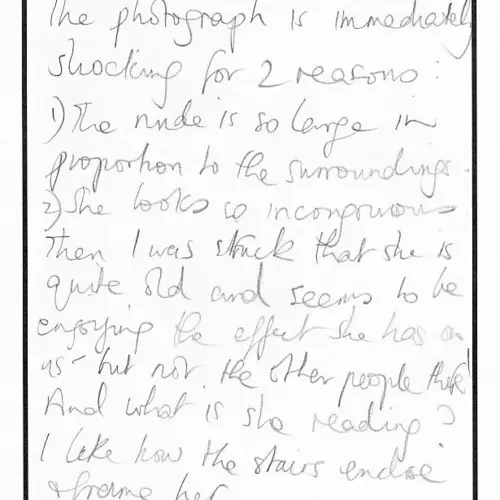 The photograph is immediately
shocking for 2 reasons:
1) The nude is so large in
proportion to the surroundings.
2) She looks so incongruous
Then I was struck that she is
quite old and seems to be
enjoying the effect she has on
us - but not the other people there!
And what is she reading?
I like how the stairs enclose
& frame her